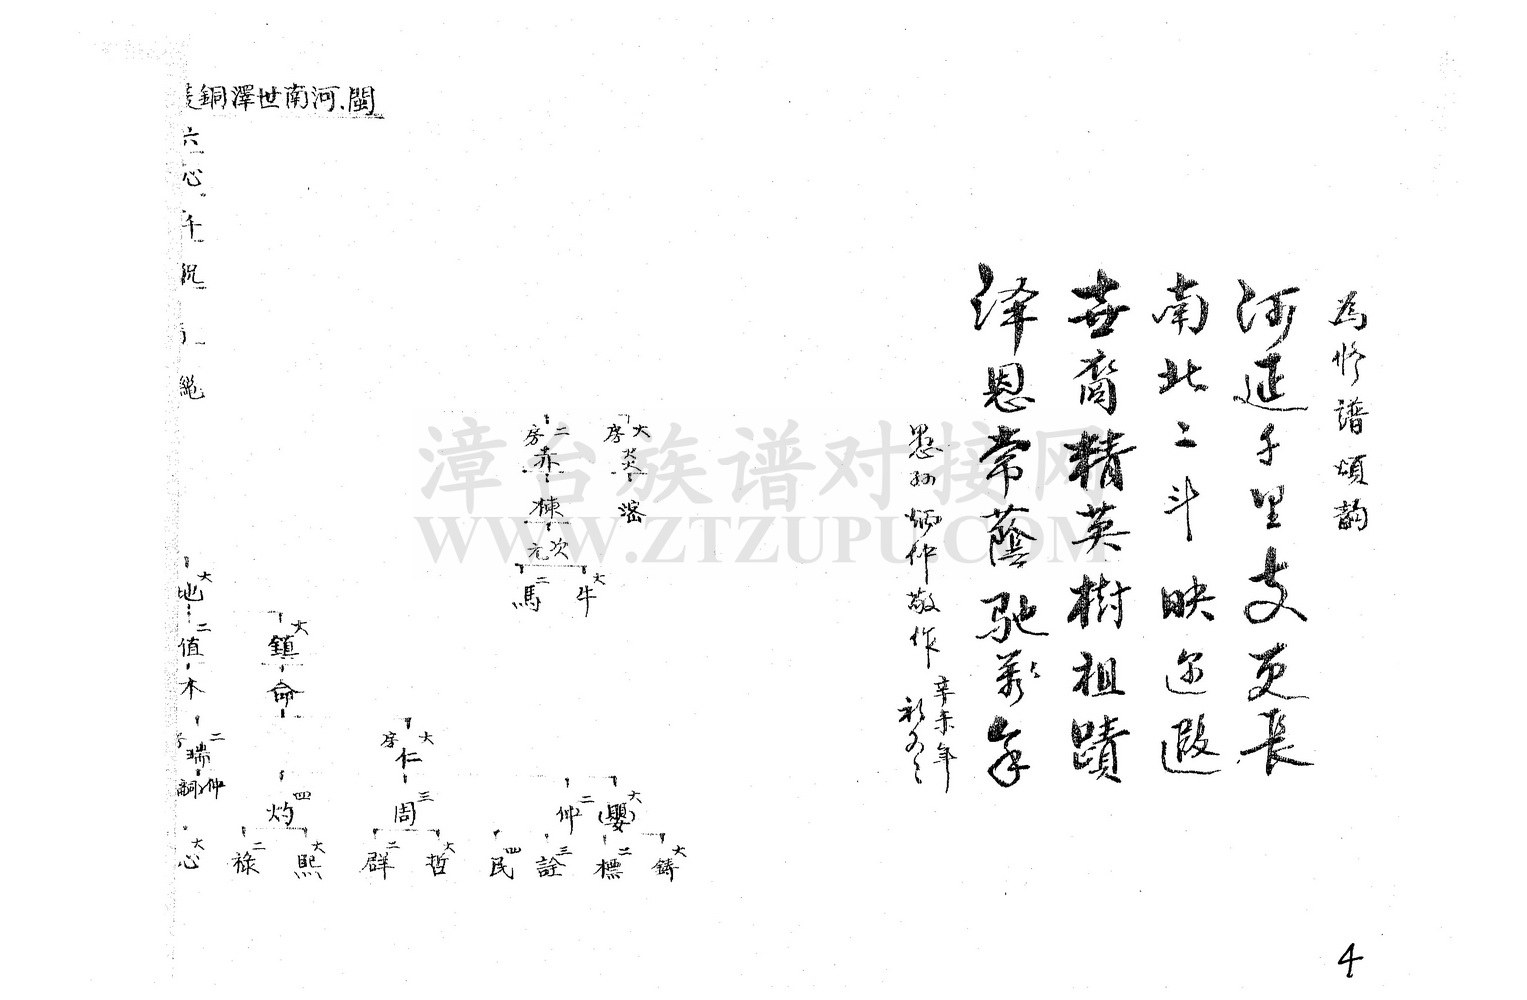 為修譜頌韵
河延千里支更長
南北二斗映迩遐
世裔精英樹祖蹟
泽恩常蔭馳萬年
愚孙炳仲敬作
辛未年
閩、河南世澤銅
六
心
千
祝
絕
大房 炎 溶
二房 赤 棟 次元
大牛 二馬
大地 二值 木
二瑞 仲 嗣
大鎮 命
大房 仁
四灼 三周 二仲 大(嬰)
大心 二祿 大熙 二群 大哲 四民 三詮 二標 大鑄
漳台族谱对接网
WWW.ZTZUPU.COM
4